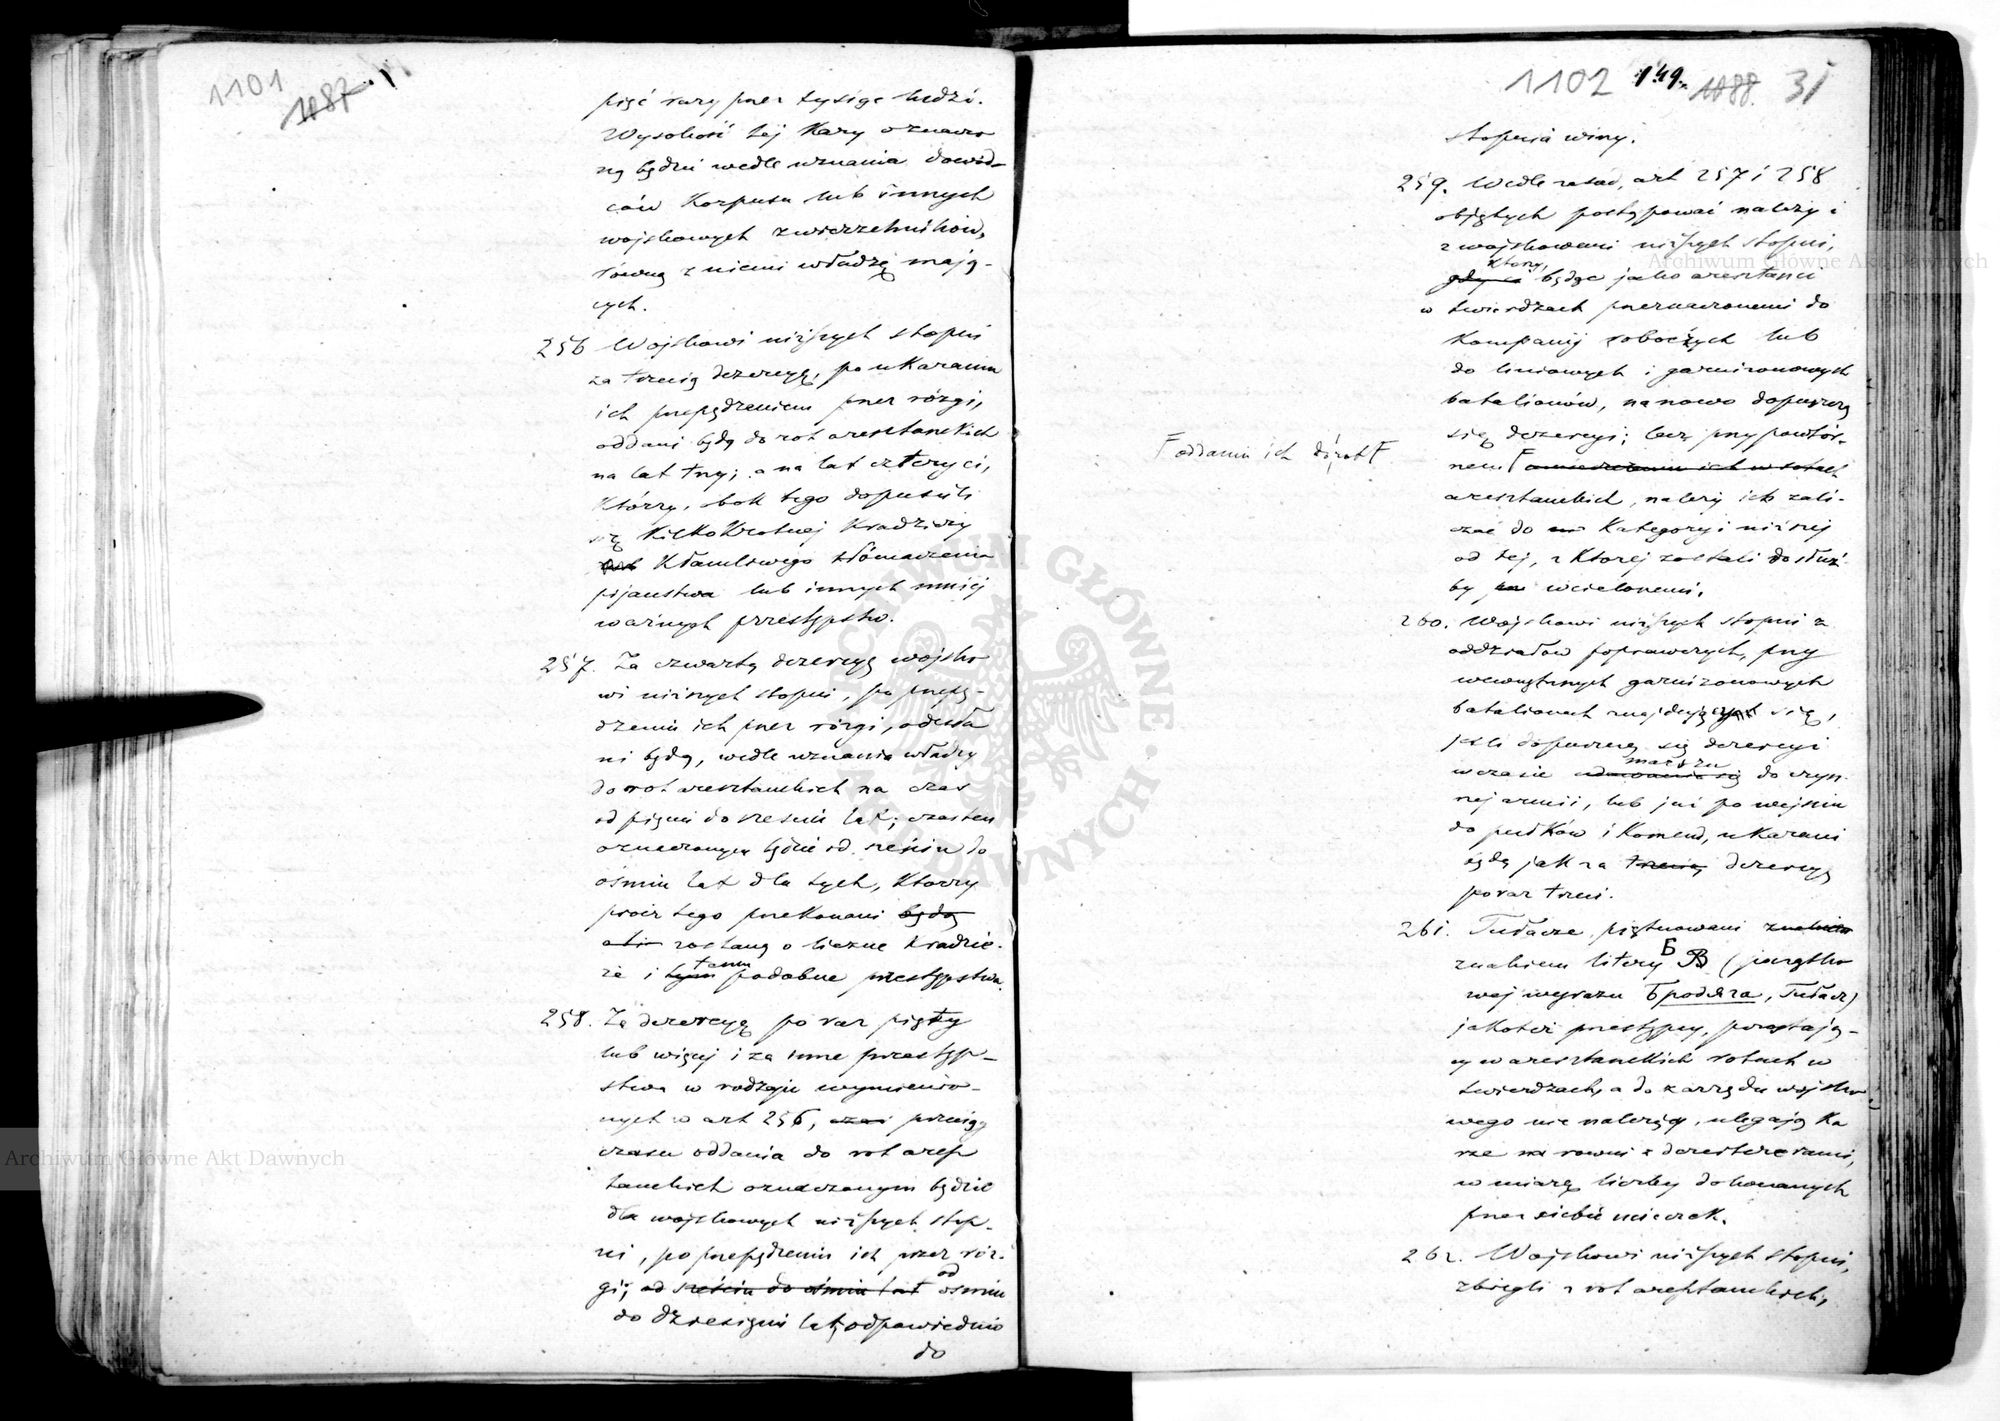 1101
1087
pięć razy przez tysiąc ludzi.
Wysokość tej Kary oznaczo
ną będzie wedle uznania dowód-
ców Korpusu lub innych
wojskowych zwierzchników,
równą z niemi władzę mają-
cych.
256 Wojskowi niższych stopni
za trzecią dezercyę, po ukaraniu
ich przepędzeniem przez rózgi,
oddani będą do rot aresztanckich
na lat trzy; a na lat cztery ci,
Którzy, bok tego dopuścili
się Kilkokrotnej Kradzieży
Kłamliwego tłómaczenia
pijaństwa lub innych mniej
ważnych przestępstw.
257. Za czwartą dezercyę wojsko
wi niższych stopni, po przepę-
dzeniu ich przez rózgi, odesła
ni będą, wedle uznania władzy
do rot aresztanckich na czas
od pięciu do sześciu lat; czas ten
oznaczonym będzie od sześciu do
ośmiu lat dla tych, Którzy
prócz tego przekonani będą
zostaną o liczne Kradzie-
że i tym tamu podobne przestępstwa.
258. Za dezercyę po raz piąty
lub więcej i za inne przestęp-
stwa w rodzaju wymienio-
nych w art 256, czas przeciąg
czasu oddania do rot aresz
tanckich oznaczonym będzie
dla wojskowych niższych stop-
ni, po przepędzeniu ich przez róz-
gi, od sześciu do ośmiu lat od ośmiu
do dziesięciu lat, odpowiednio
do
1102 149. 1088. 31
stopnia winy.
259. Wedle zasad, art 257 i 258
objętych postępować należy i
z wojskowemi niższych stopni,
którzy,
gdy ci będąc jako aresztanci
w twierdzach przeznaczonemi do
Kompanij roboczych lub
do liniowych i garnizonowych
batalionów, na nowo dopuszczą
się dezercyi; lecz przy powtór-
nem umieszczeniu ich w rotach
oddaniu ich do rot
aresztanckich, należy ich zali-
czać do Kategoryi niższej
od tej, z Której zostali do służ-
by wcielonemi.
260. Wojskowi niższych stopni z
oddziałów poprawczych, przy
wewnętrznych garnizonowych
batalionach znajdujących się,
jeśli dopuszczą się dezercyi
marszu
w czasie udawania się do czyn-
nej armii, lub już po wejściu
do pułków i Komend, ukarani
będą jak za trzecią dezercyę
po raz trzeci.
261. Tułacze piętnowani znakiem
znakiem litery Б B (początko
wej wyrazu Бродяга, Tułacz)
jakoteż przestępcy, pozostają-
cy w aresztanckich rotach w
twierdzach, a do zarządu wojsko-
wego nie należący, ulegają Ka
rze na równi z dezerterami,
w miarę liczby dokonanych
przez siebie ucieczek.
262. Wojskowi niższych stopni,
zbiegli z rot aresztanckich,
Archiwum Główne Akt Dawnych
Archiwum Główne Akt Dawnych
ARCHIWUM GŁÓWNE AKT DAWNYCH